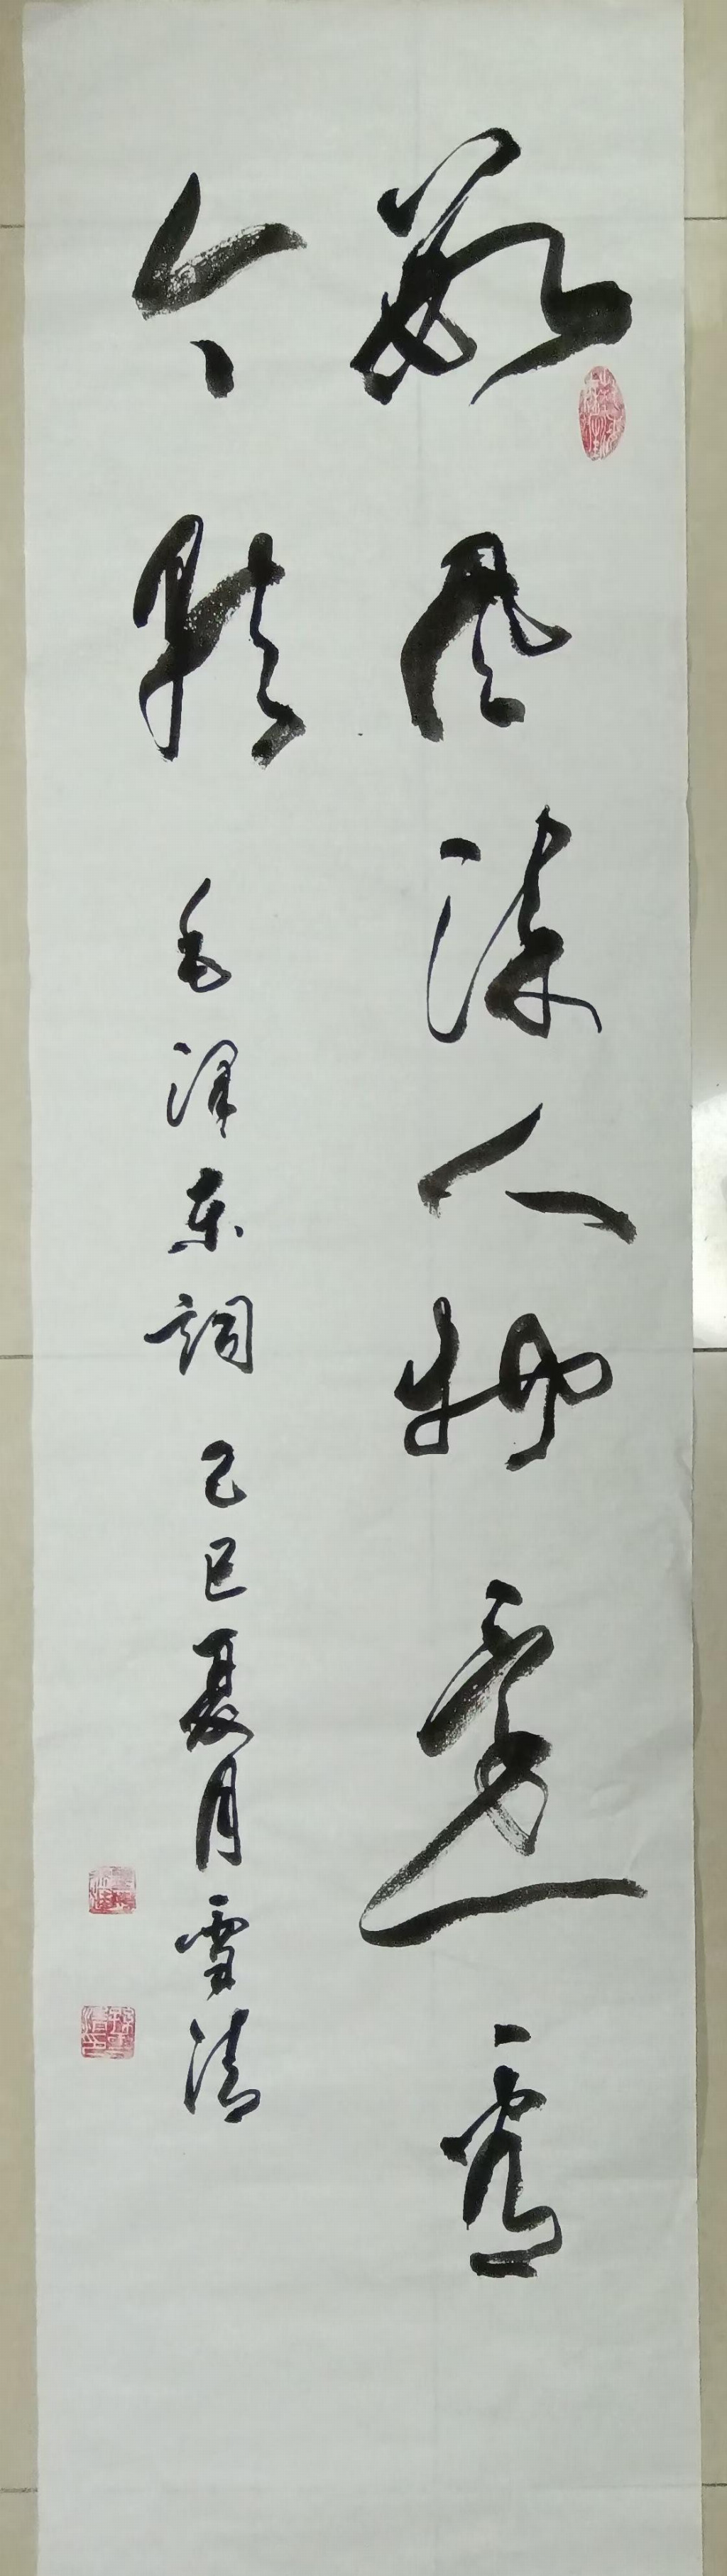 数风流人物还看
今朝 毛泽东詞 乙巳夏月雪清